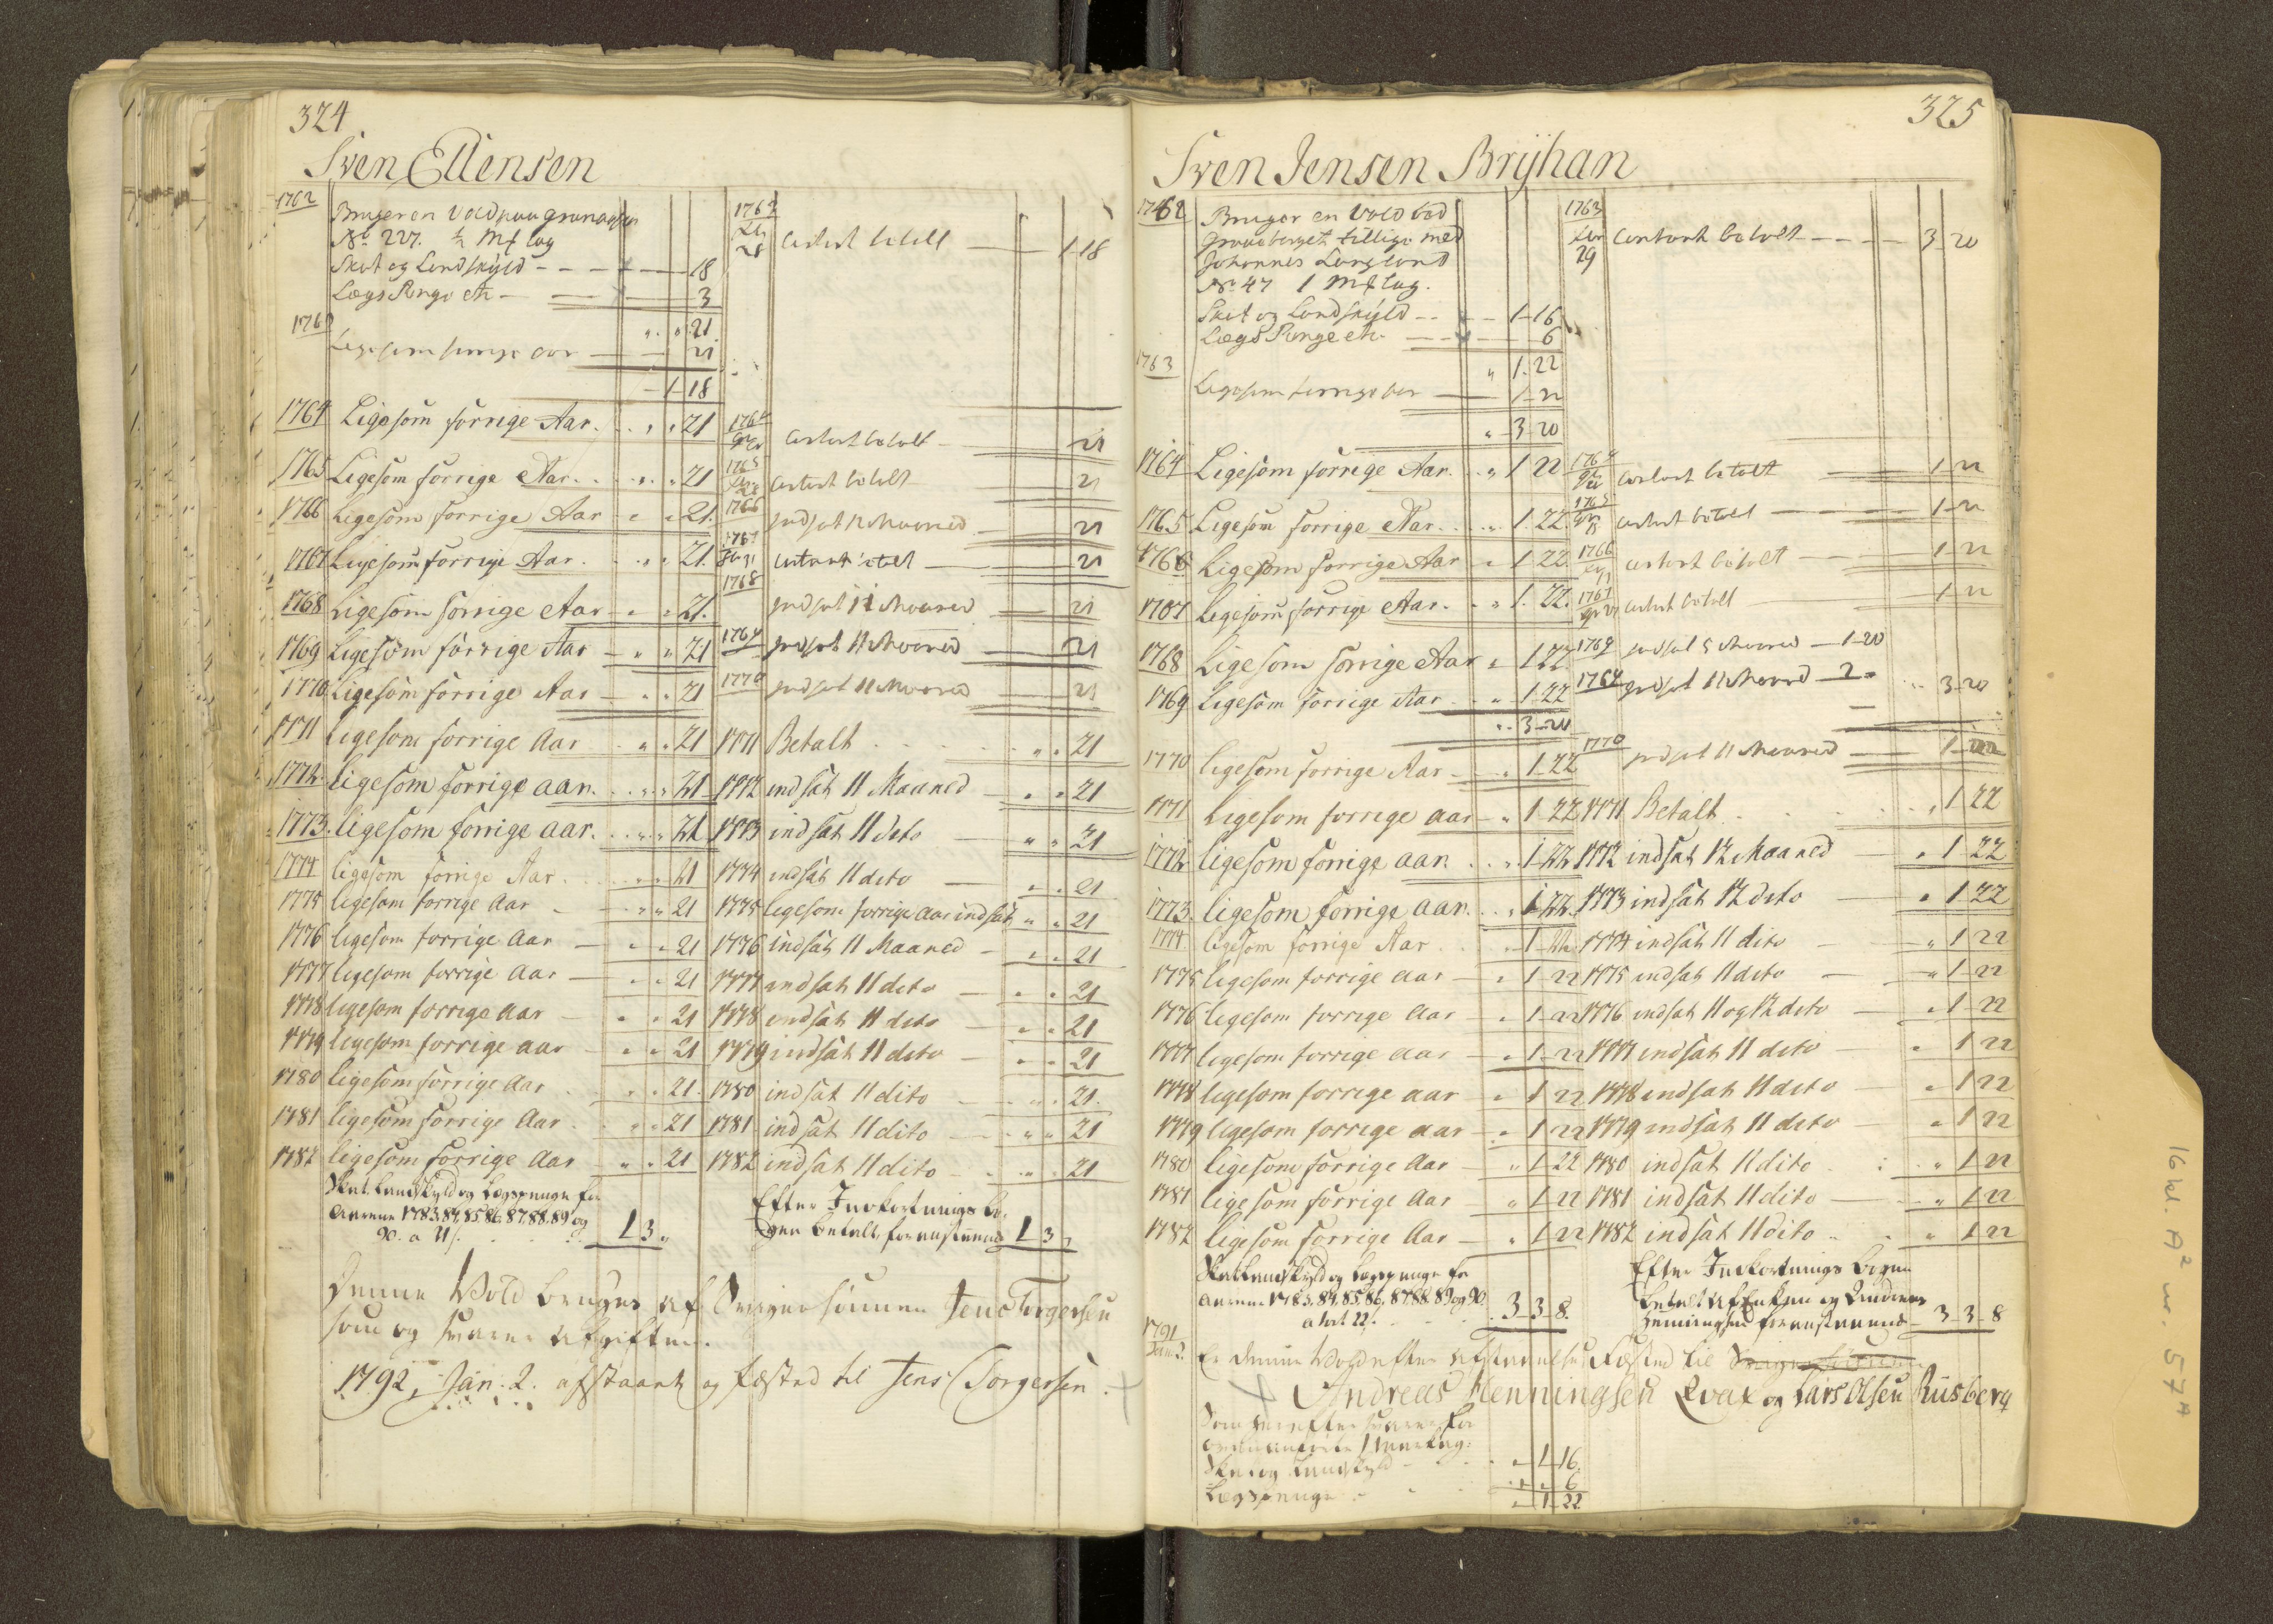 324
Sven Ellensen
1762 Bruger en Vold paa Grunaasen
No 227. ½ Mf lag
Skat og Landskÿld - - - 18
Lægs Penge etc - 3
" " 21
1763 Ligesom forrige aar 21
- 1-18
1764 Ligesom forrige Aar. " " 21
1765 Ligesom forrige Aar. . . " " 21
1766 Ligesom forrige Aar " " 21.
1767 Ligesom forrige Aar. " " 21.
1768 Ligesom forrige Aar - " " 21.
1769 Ligesom forrige Aar - " " 21
1770 Ligesom forrige Aar - " " 21
1771 Ligesom forrige Aar " " 21
1772. ligesom forrige aar. " " 21
1773. ligesom forrige aar. " " 21
1774 ligesom forrige Aar. " " 21
1775 ligesom forrige Aar - " " 21
1776 ligesom forrige Aar - " " 21
1777 ligesom forrige Aar - " " 21
1778 ligesom forrige Aar - " " 21
1779 ligesom forrige aar - " " 21
1780 ligesom forrige Aar. " " 21.
1781 ligesom forrige Aar. " " 21
1782 ligesom forrige Aar - " " 21
Skat Landskyld og Lægspenge for
Aarene 1783, 84, 85, 86, 87, 88, 89 og
90. a 21 s. . . . 1 3 "
1763
28 Contant betalt - 1-18
1764 Contant betalt - 21
1765 Contant betalt 21
1766 indsat 12 Maaned - 21
1767 Contant betalt - 21
1768 indsat 11 Maaned - 21
1769 indsat 11 Maaned - 21
1770 indsat 11 Maaned - 21
1771 Betalt . . . " " 21
1772 indsat 11 Maaned - " " 21
1773 indsat 11 dito - " " 21
1774 indsat 11 dito - " " 21
1775 ligesom forrige aar indsat " " 21
1776 indsat 11 Maaned - " " 21
1777 indsat 11 dito - " " 21
1778 indsat 11 dito - " " 21
1779 indsat 11 dito - " " 21
1780 indsat 11 dito - " " 21.
1781 indsat 11 dito - " " 21
1782 indsat 11 dito - " " 21
Efter Indkortnings Bo-
gen betalt foranstaaende 1 3 "
Denne Vold bruges af Svigersönnen Jens Torgersen
som og svarer afgiften.
1792, Jan: 2. afstaaet og fæsted til Jens Torgersen.
325
Sven Jensen Brÿhan
1762 Bruger en Vold ved
Graaberget tillige med
Johannes Langland
No 47 1 Mf lag.
Skat og Landskÿld - - 1-16
Lægs Penge etc. - - 6
" 1-22
1763 Ligesom forrige aar - 1-22
" 3-20
1764 Ligesom forrige Aar. " 1 22
1765 Ligesom forrige Aar. . . " 1. 22.
1766 Ligesom forrige Aar " 1 22.
1767 Ligesom forrige Aar. " 1. 22.
1768 Ligesom forrige Aar " 1.22
1769 Ligesom forrige Aar " 1-22
" 3-20
1770 ligesom forrige Aar - " 1-22
1771 Ligesom forrige aar - " 1-22
1772 ligesom forrige aar. . " 1-22
1773. ligesom forrige aar. " 1-22.
1774 ligesom forrige Aar " 1-22
1775 ligesom forrige aar - " 1-22
1776 ligesom forrige Aar - " 1-22
1777 ligesom forrige aar - " 1-22
1778 ligesom forrige aar - " 1 22
1779 ligesom forrige aar - " 1 22
1780 ligesom forrige Aar - " 1-22
1781 ligesom forrige Aar " 1-22
1782 ligesom forrige Aar - " 1 22
Skat Landskyld og Lægspenge for
Aarene 1783, 84, 85, 86, 87, 88, 89 og 90
a 1 ort 22 s. . . . 3-3-8.
1763
29 Contant betalt - - - 3-20
1764 Contant betalt 1-22
1765 Contant betalt - - - 1-22
1766 Contant betalt - 1-22
1767 Contant betalt - 1-22
1769 indsat 5 Maaned - 1-20
1769 indsat 11 Maaned - 2 - " 3-20
1770 indsat 11 Maaned - 1-22
1771 Betalt . . . " 1 22
1772 indsat 12 Maaned - " 1-22
1773 indsat 12 dito - " 1-22
1774 indsat 11 dito - " 1 22
1775 indsat 11 dito - " 1-22
1776 indsat 11 og 12 dito - " 1-22
1777 indsat 11 dito - " 1 22
1778 indsat 11 dito - " 1 22
1779 indsat 11 dito - " 1 22
1780 indsat 11 dito . : " 1 22
1781 indsat 11 dito - " 1-22
1782 indsat 11 dito " . " 1 22
Efter Indkortnings Bogen
betalt af Enken og Andreas
Henningsen foranstaaende - 3-3-8
1791
Jan: 2. Er denne Vold efter afstaaelse fæsted til
Andreas Henningsen Kvat og Lars Olsen Rusberg
Som herefter svarer for
ovenanförte 1 Mærkelag:
Skat og Landskyld - " 1-16.
Lægspenge " " 6
" 1-22
16 kl. A² nr. 57A